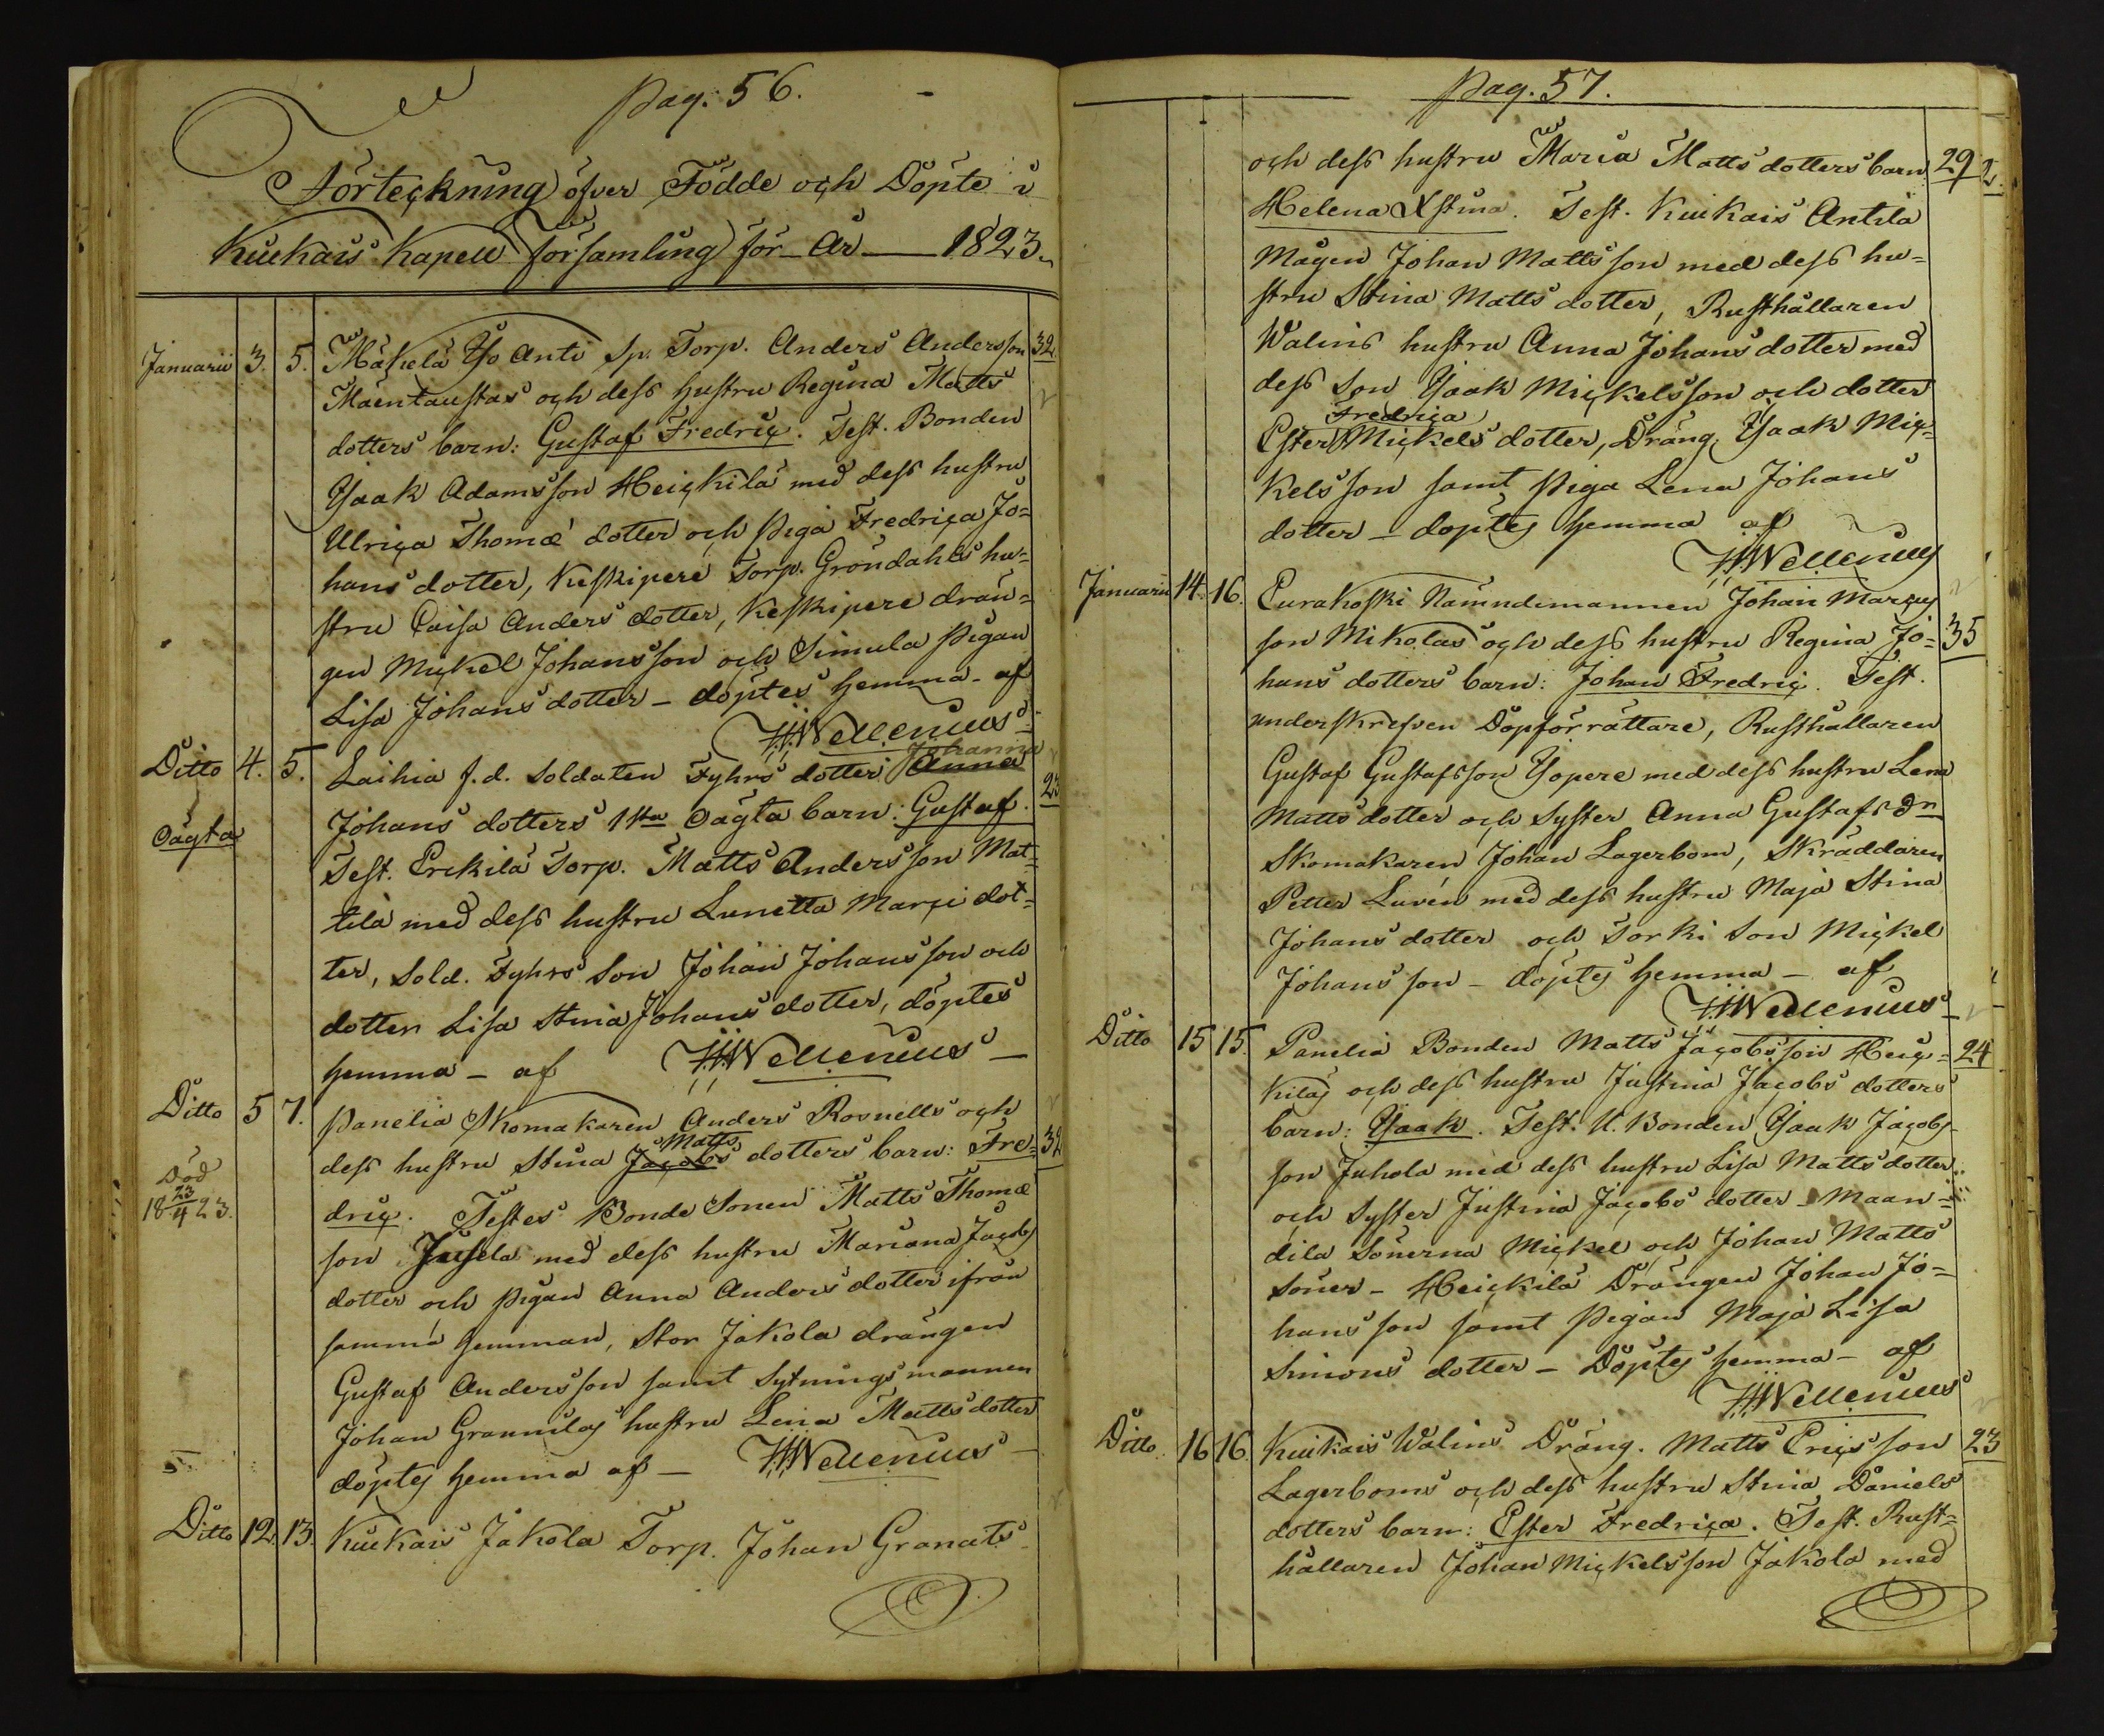 Pag. 56.
Förteckning öfver Födde och Döpte i
Kiukais Kapell församling för År 1823.
Januarii 3. 5. Mäkelä Yso Anti Sp. Torp. Anders Andersson 32
Mäentaustas och dess hustru Regina Matts
dotters barn: Gustaf Fredric. Test. Bonden
Ysaak Adamsson Heickilä med dess hustru
Ulrica Thomæ dotter och Piga Fredrica Jo=
hans dotter, Keskipere Torp. Gröndahls hu=
stru Caisa Anders dotter, Keskipere drän=
gen Mickel Johansson och Simula Pigan
Lisa Johans dotter – döptes hemma – af
Wellenius
Ditto 4. 5. Laihia f. d. Soldaten Fyhrs dotter Johanna Anna
Oägta
Johans dotters 1sta Oägta barn: Gustaf. 23
Test. Erkilä Torp. Matts Andersson Mat=
tila med dess hustru Lunetta Marci dot=
ter, Sold. Fyhrs Son Johan Johansson och
dotter Lisa Stina Johans dotter, döptes
hemma – af Wellenius –
Ditto 5 7. Panelia Skomakaren Anders Rosnells och
dess hustru Stina Jacobs Matts dotters barn: Fre= 32
Död
18 23/4 23.
dric. Testes Bonde Sonen Matts Thomæ
son Jusela med dess hustru Mariana Jacobs
dotter och Pigan Anna Anders dotter ifrån
samma hemman, Stor Jakola drängen
Gustaf Andersson samt Sytningsmannen
Johan Grannilas hustru Lena Matts dotter
döptes hemma af – Wellenius –
Ditto 12. 13. Kiukais Jakola Torp. Johan Granats
Pag. 57.
och dess hustru Maria Matts dotters barn 29
Helena Xstina. Test. Kiukais Antila
Mågen Johan Mattsson med dess hu=
stru Stina Matts dotter, Rusthållaren
Walins hustru Anna Johans dotter med
dess Son Ysaak Mickelsson och dotter
Fredrica
Ester Mickels dotter, Dräng Ysaak Mic=
kelsson samt Piga Lena Johans
dotter – döptes hemma af
Wellenius
Januarii 14. 16. Eurakoski Nämndemannen Johan Marcus
son Mikolas och dess hustru Regina Jo= 35
hans dotters barn: Johan Fredric. Test.
underskrefven Döpförrättare, Rusthållaren
Gustaf Gustafsson Yopere med dess hustru Lena
Matts dotter och Syster Anna Gustafs dr
Skomakaren Johan Lagerbom, Skräddaren
Petter Luren med dess hustru Maja Stina
Johans dotter och Torki Son Mickel
Johansson – döptes hemma – af
Wellenius
Ditto 15 15. Panelia Bonden Matts Jacobsson Heic= 24
kilas och dess hustru Justina Jacobs dotters
barn: Ysaak. Test. U. Bonden Ysaak Jacobs
son Juhola med dess hustru Lisa Matts dotter
och Syster Justina Jacobs dotter – Maan=
dila Sönerna Mickel och Johan Matts
Söner – Heickilä Drängen Johan Jo=
hansson samt Pigan Maja Lisa
Simons dotter – Döptes hemma – af
Wellenius
Ditto 16 16 Kiukais Walins Dräng. Matts Ericsson 23
Lagerboms och dess hustru Stina Daniels
dotters barn: Ester Fredrica. Test. Rust=
hållaren Johan Mickelsson Jakola med